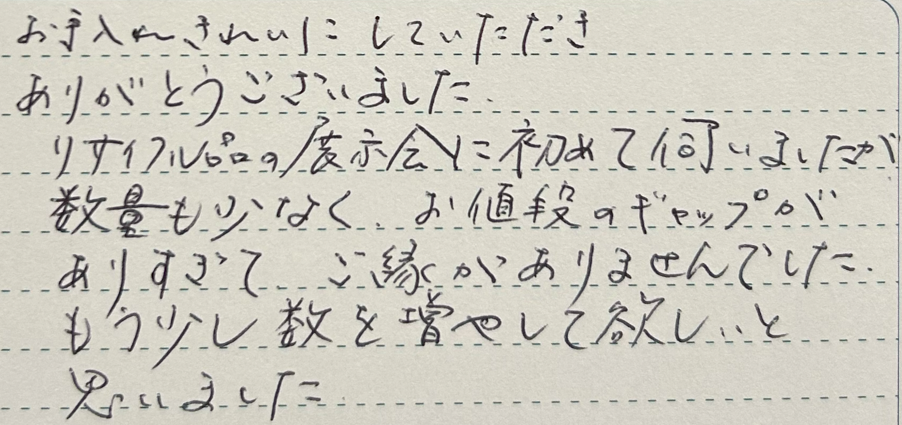 お手入れきれいにしていただき
ありがとうございました.
リサイクル品の展示会に初めて伺いましたが
数量も少なく、お値段のギャップが
ありすぎて、ご縁がありませんでした.
もう少し数を増やして欲しいと
思いました